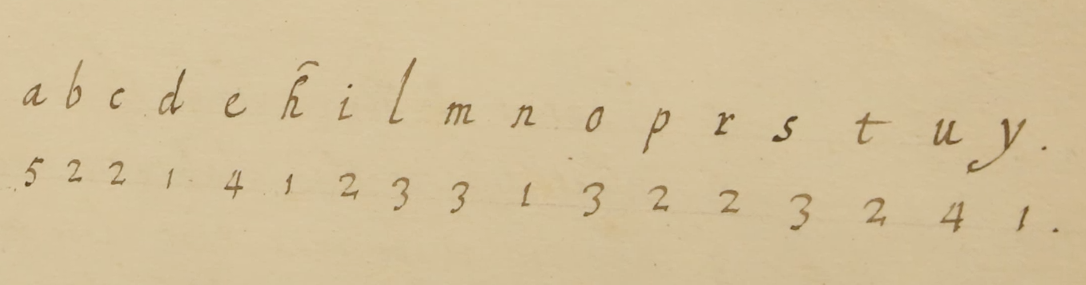 a b c d e h̄ i l m n o p r s t u y .
5 2 2 1 4 1 2 3 3 1 3 2 2 3 2 4 1 .